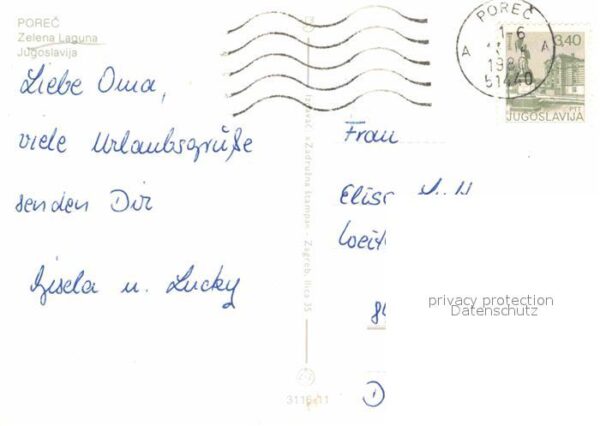 POREČ
Zelena Laguna
Jugoslavija
Liebe Oma,
viele Urlaubsgrüße
senden Dir
Gisela u. Lucky
Zadružna štampa - Zagreb, Ilica 35
3116/11
POREČ
1-6
A A
51440
3,40
JUGOSLAVIJA
Frau
D
privacy protection
Datenschutz